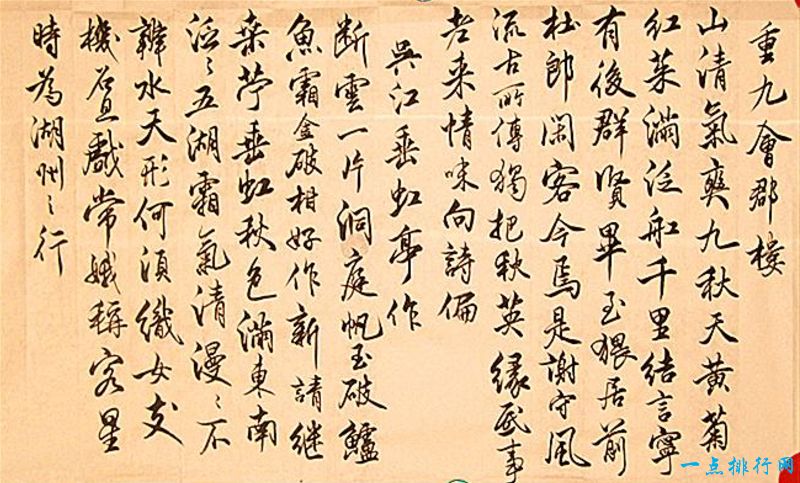 重九會郡樓
山清氣爽九秋天黄菊
紅茱滿泛船千里結言寧
有後群賢畢至猥居前
杜郎閑客今焉是謝守風
流古所傳獨把秋英緣底事
老来情味向詩偏
吳江垂虹亭作
断雲一片洞庭帆玉破鱸
魚霜金破柑好作新請継
桒苧垂虹秋色滿東南
泛〻五湖霜氣清漫〻不
辨水天形何須織女支
機且戲常娥稱客星
時為湖州之行
一点排行网